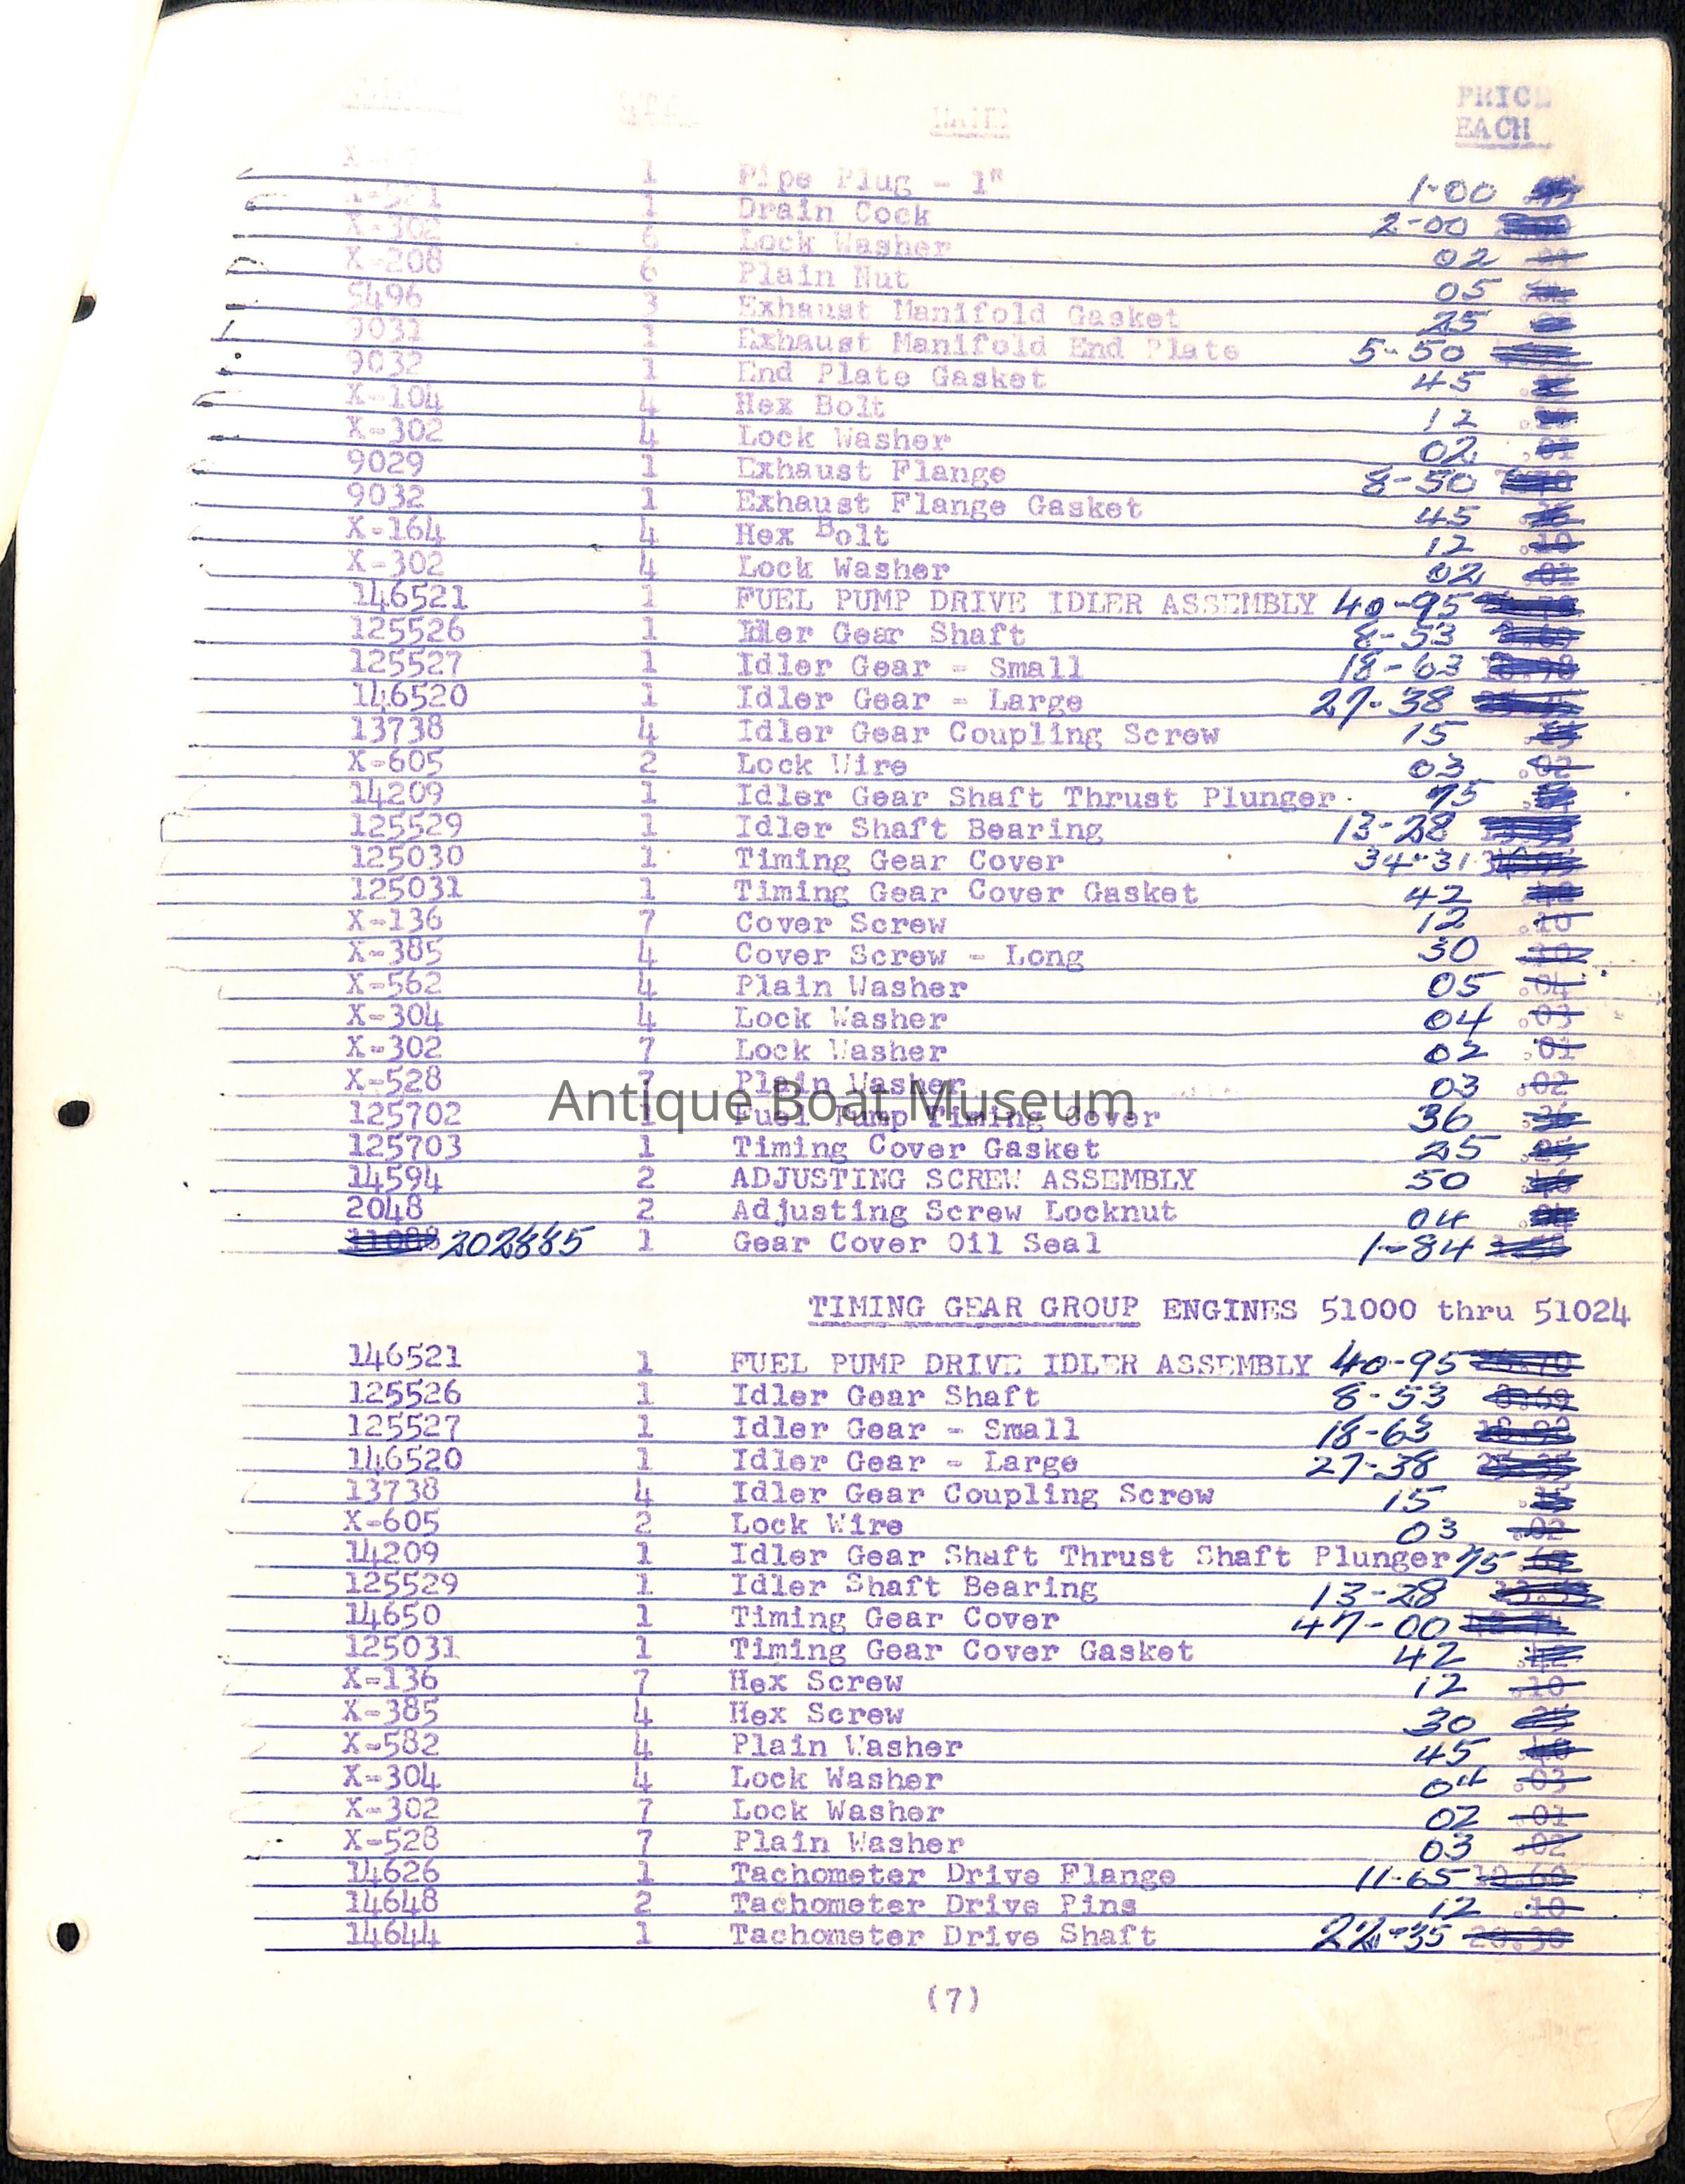 PRICE
EACH
1 Pipe Plug - 1" 1-00
1 Drain Cock 2-00
X-302 6 Lock Washer 02
X-208 6 Plain Nut 05
5496 3 Exhaust Manifold Gasket 25
9031 1 Exhaust Manifold End Plate 5-50
9032 1 End Plate Gasket 45
X-104 4 Hex Bolt 12
X-302 4 Lock Washer 02
9029 1 Exhaust Flange 8-50
9032 1 Exhaust Flange Gasket 45
X-164 4 Hex Bolt 12 .10
X-302 4 Lock Washer 02 .01
146521 1 FUEL PUMP DRIVE IDLER ASSEMBLY 40-95
125526 1 Idler Gear Shaft 8-53
125527 1 Idler Gear - Small 18-63
146520 1 Idler Gear - Large 27-38
13738 4 Idler Gear Coupling Screw 15
X-605 2 Lock Wire 03 .02
14209 1 Idler Gear Shaft Thrust Plunger 75
125529 1 Idler Shaft Bearing 13-28
125030 1 Timing Gear Cover 34-31
125031 1 Timing Gear Cover Gasket 42
X-136 7 Cover Screw 12 .10
X-385 4 Cover Screw - Long 30
X-562 4 Plain Washer 05 .04
X-304 4 Lock Washer 04 .03
X-302 7 Lock Washer 02 .01
X-528 7 Plain Washer 03 .02
Antique Boat Museum
125702 1 Fuel Pump Timing Cover 36
125703 1 Timing Cover Gasket 25
14594 2 ADJUSTING SCREW ASSEMBLY 50
2048 2 Adjusting Screw Locknut 04
11088 202885 1 Gear Cover Oil Seal 1-84
TIMING GEAR GROUP ENGINES 51000 thru 51024
146521 1 FUEL PUMP DRIVE IDLER ASSEMBLY 40-95
125526 1 Idler Gear Shaft 8-53
125527 1 Idler Gear - Small 18-63
146520 1 Idler Gear - Large 27-38
13738 4 Idler Gear Coupling Screw 15
X-605 2 Lock Wire 03 .02
14209 1 Idler Gear Shaft Thrust Shaft Plunger 75
125529 1 Idler Shaft Bearing 13-28
14650 1 Timing Gear Cover 47-00
125031 1 Timing Gear Cover Gasket 42
X-136 7 Hex Screw 12 .10
X-385 4 Hex Screw 30
X-582 4 Plain Washer 45
X-304 4 Lock Washer 04 .03
X-302 7 Lock Washer 02 .01
X-528 7 Plain Washer 03 .02
14626 1 Tachometer Drive Flange 11-65 10.60
14648 2 Tachometer Drive Pins 12 .10
14644 1 Tachometer Drive Shaft 22-35 20.30
(7)